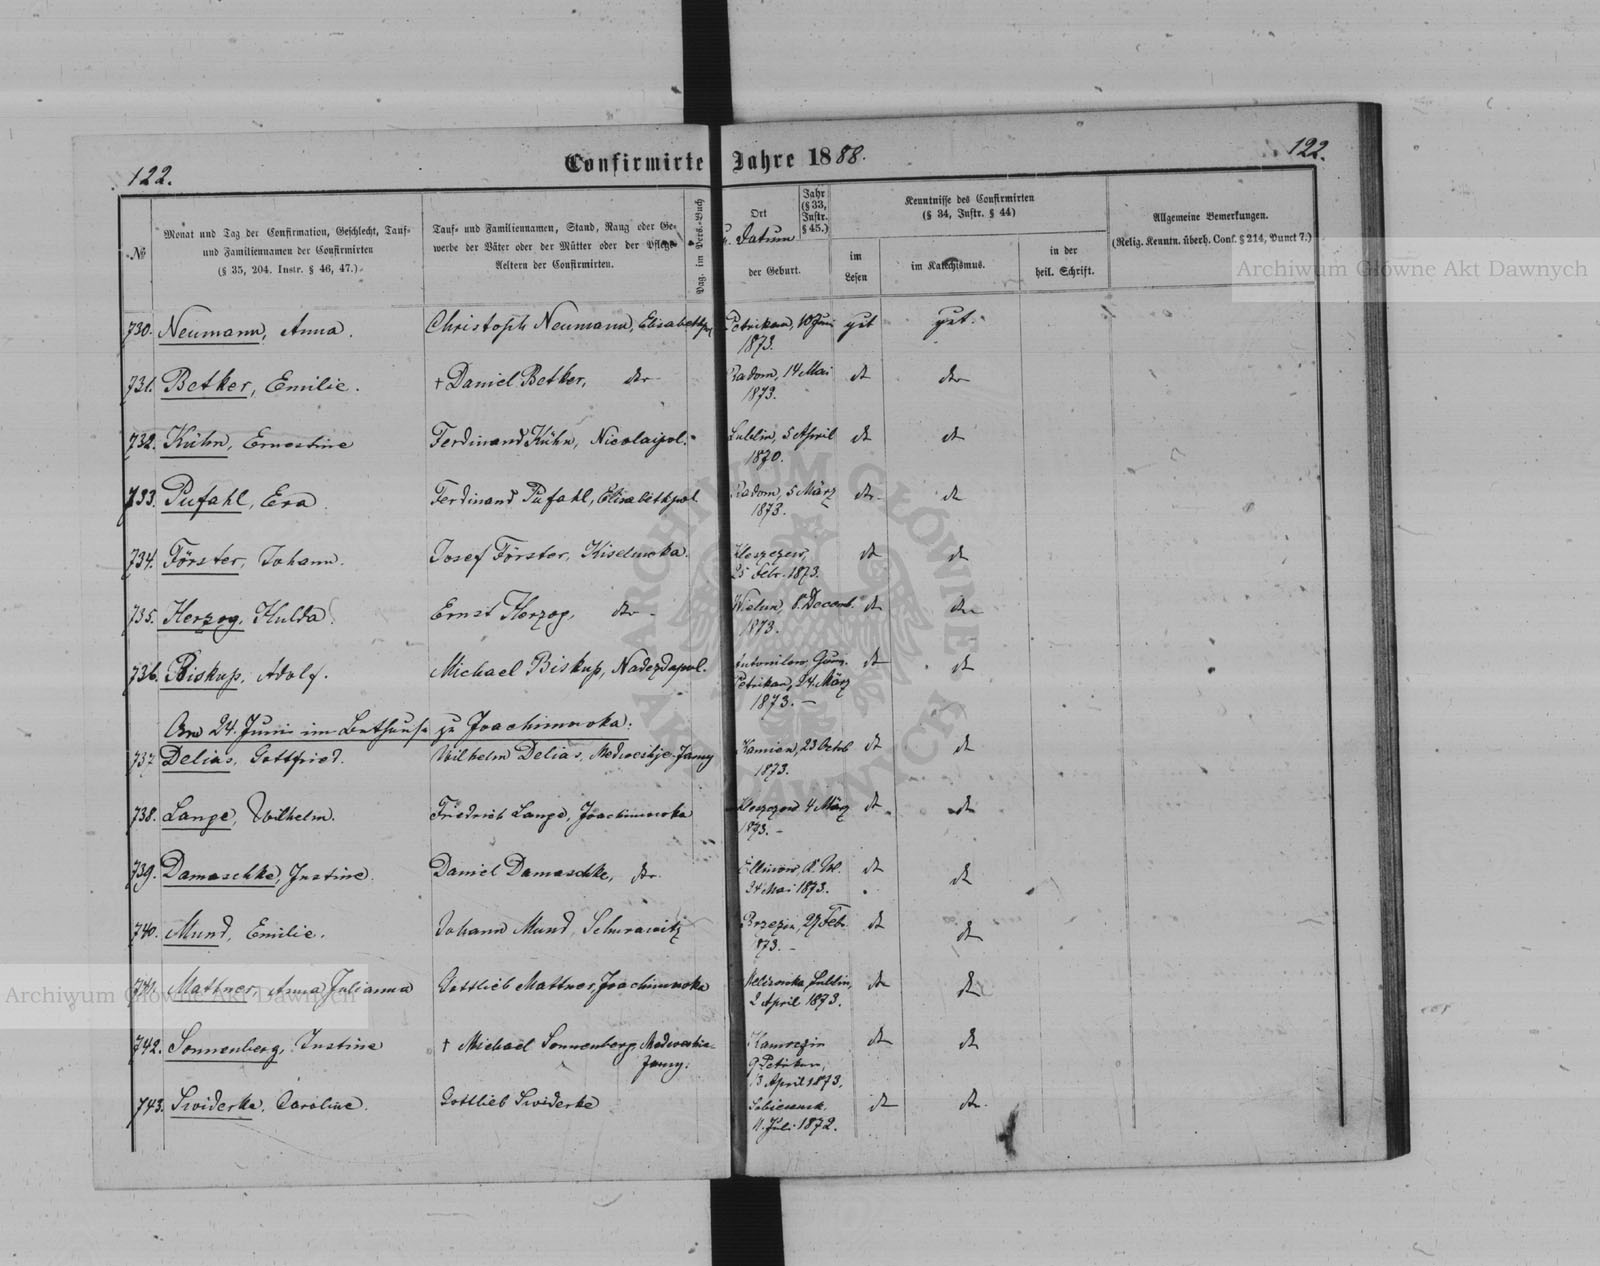 122.
Confirmirte Jahre 1888.
122.
№
Monat und Tag der Confirmation, Geschlecht, Tauf-
und Familiennamen der Confirmirten
(§ 35, 204. Instr. § 46, 47.)
Tauf- und Familiennamen, Stand, Rang oder Ge-
werbe der Väter oder der Mütter oder der Pflege-
Aeltern der Confirmirten.
Pag. im Pers.-Buch
Ort
u. Datum
der Geburt.
Jahr
(§ 33,
Instr.
§ 45.)
Kenntnisse des Confirmirten
(§ 34, Instr. § 44)
im
Lesen
im Katechismus.
in der
heil. Schrift.
Allgemeine Bemerkungen.
(Relig. Kenntn. überh. Conf. § 214, Punct 7.)
730. Neumann, Anna. Christoph Neumann, Petrikau, 10 Juni gut gut.
1873.
731. Betker, Emilie. † Daniel Betker, dto Radom, 14 Mai dto dto
1873.
732. Kühn, Ernestine Ferdinand Kühn, Nicolaipol. Lublin, 5 April dto dto
1870.
733. Pufahl, Eva Ferdinand Pufahl, Elisabethpol. Radom, 5 März dto dto
1873.
734. Förster, Johann. Josef Förster, Kiselewka. Kleszczew, dto dto
25 Febr. 1873.
735. Herzog, Hulda. Ernst Herzog, dto Wielun, 8. Decemb. dto dto
1873.
736. Biskup, Adolf. Michael Biskup, Nadezdapol. Antonilew, Guv. dto dto
Petrikau, 24 März
1873.
Am 24. Juni im Bethause zu Joachimowka.
737. Delias, Gottfried. Wilhelm Delias, Medweshje-Jamy Kamien, 23 Octob dto dto
1873.
738. Lange, Wilhelm. Friedrich Lange, Joachimowka Kleszczow 4 März dto dto
1873.
739. Damaschke, Justine Daniel Damaschke, dto dto dto
24 Mai 1873.
740. Mund, Emilie. Johann Mund, Schurawitz Brzezin, 27 Feb. dto dto
1873.
741. Mattner, Anna Julianna Gottlieb Mattner, Joachimowka Lublin, dto dto
2 April 1873.
742. Sonnenberg, Justine † Michael Sonnenberg, Medweshie- dto dto
Jamy. G. Petrikau,
13 April 1873.
743. Swiderke, Caroline. Gottlieb Swiderke dto dto
11. Juli 1872.
Archiwum Główne Akt Dawnych
Archiwum Główne Akt Dawnych
ARCHIWUM GŁÓWNE AKT DAWNYCH